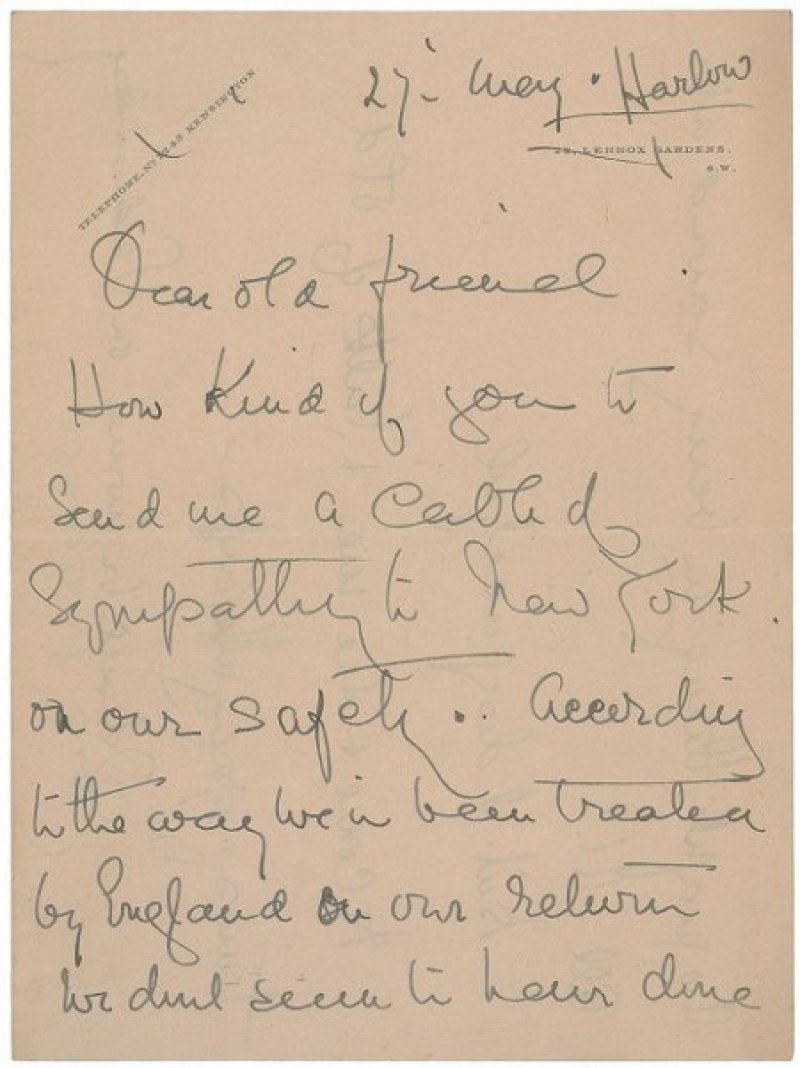 TELEPHONE, Nº KENSINGTON
27- May. Harlow
LENNOX GARDENS.
S.W.
Dear old friend.
How kind of you to
send me a cable of
sympathy to New York.
on our safety.. According
to the way we've been treated
by England on our return
we dont seem to have done